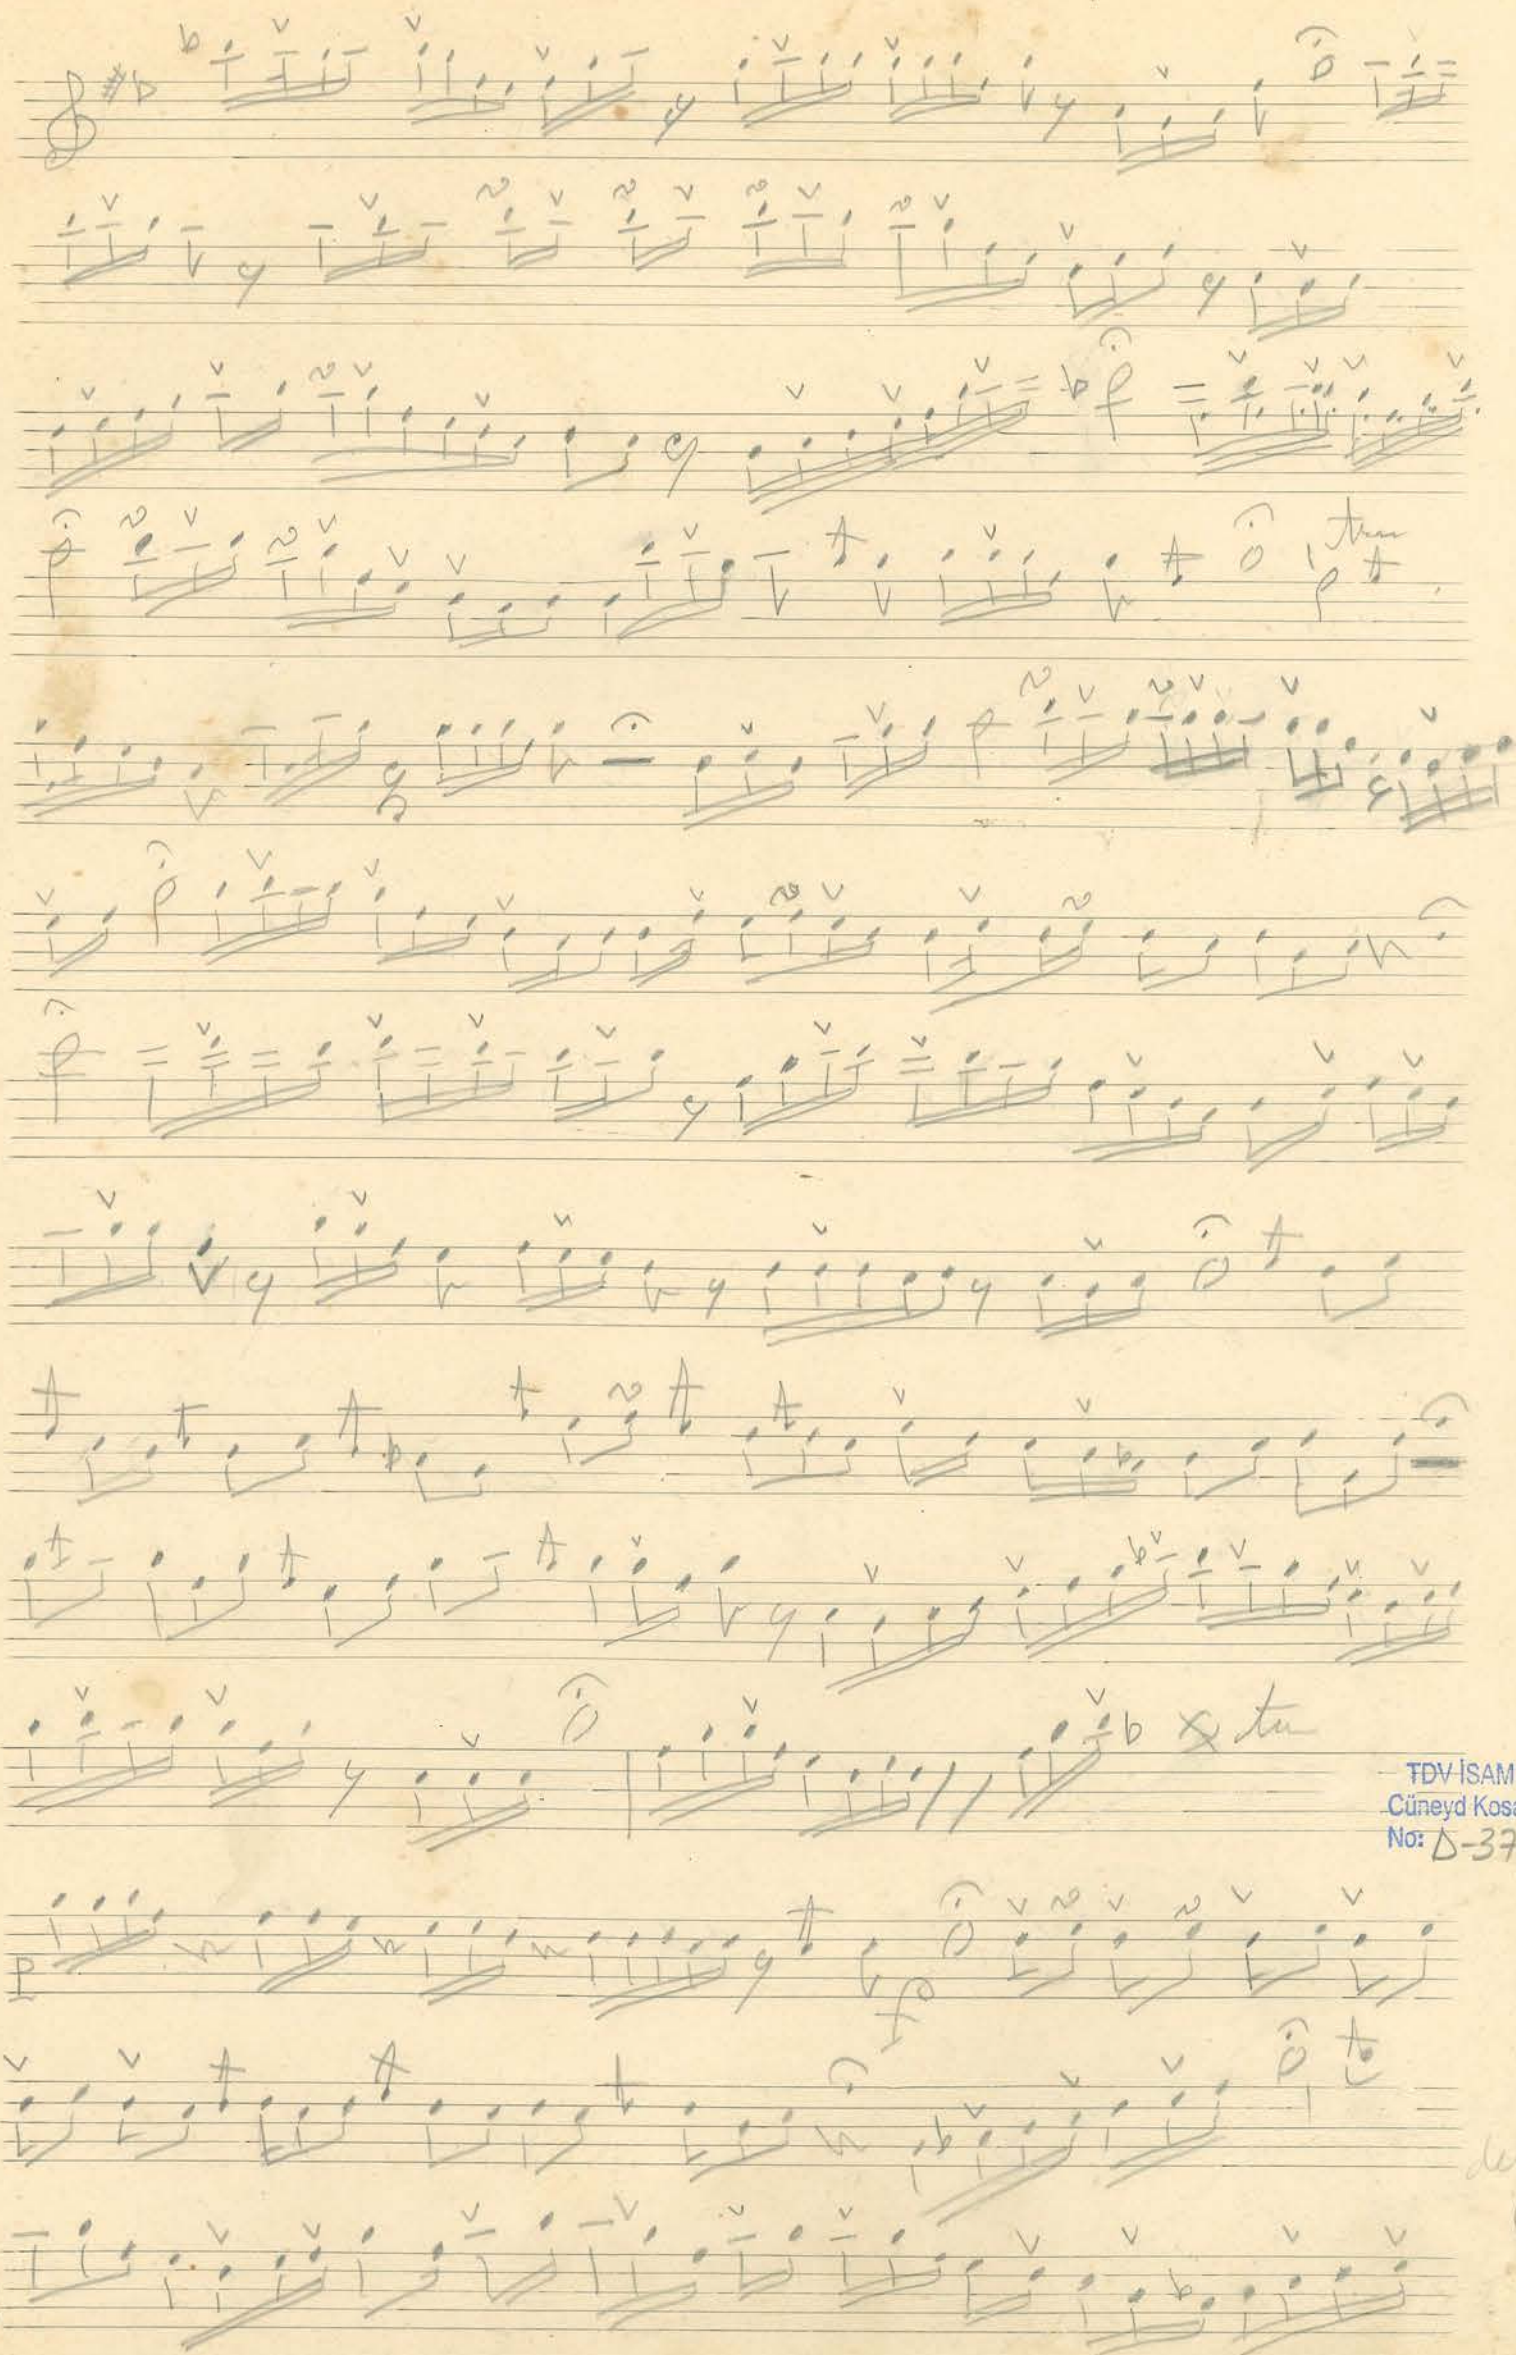 tr
tr
TDV İSAM
Cüneyd Kosa
No: D-37